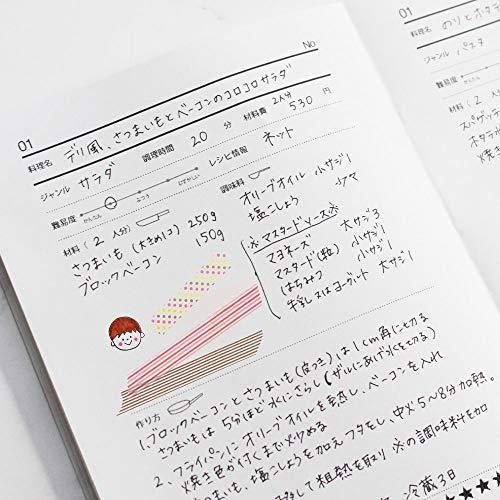 No
01
料理名 デリ風、さつまいもとベーコンのコロコロサラダ
ジャンル サラダ 調理時間 20 分 材料費 2人分 530 円
難易度 かんたん ふつう むずかしい レシピ情報 ネット
材料( 2 人分)
さつまいも (大きめ1コ) 250g
ブロックベーコン 150g
調味料
オリーブオイル 小サジ1
塩こしょう 少々
※マスタードソース※
マヨネーズ 大サジ3
マスタード(粒) 小サジ1
はちみつ 小サジ1
牛乳又はヨーグルト 大サジ1
作り方
1.ブロックベーコンとさつまいも(皮つき)は1cm角に切る
さつまいもは5分ほど水にさらし(ザルにあげ水を切る)
2、フライパンにオリーブオイルを熱し、ベーコンを入れ
焼き色が付くまで炒める
さつまいも、塩こしょうを加えフタをし、中火5~8分加熱。
移して粗熱を取り ※の調味料を加
冷蔵3日
★★★★
01
料理名 のりとホタテ
ジャンル パスタ
難易度 かんたん
材料( 2 人
スパゲッティ
ホタテ
焼き